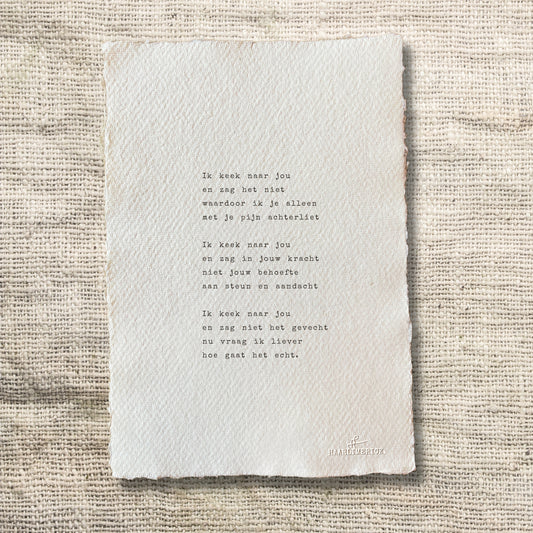 Ik keek naar jou
en zag het niet
waardoor ik je alleen
met je pijn achterliet
Ik keek naar jou
en zag in jouw kracht
niet jouw behoefte
aan steun en aandacht
Ik keek naar jou
en zag niet het gevecht
nu vraag ik liever
hoe gaat het echt.